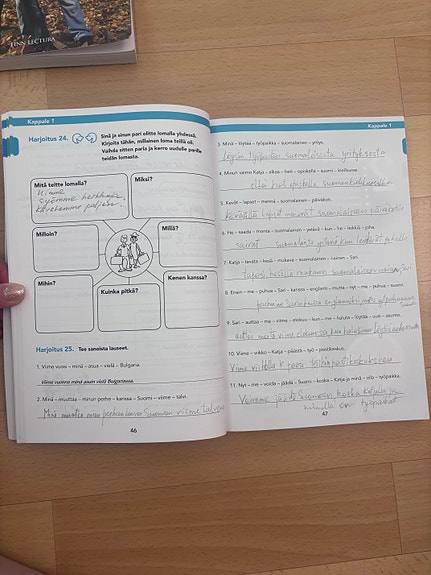 FINN LECTURA
Kappale 1
Harjoitus 24.
Sinä ja sinun pari olitte lomalla yhdessä.
Kirjoita tähän, millainen loma teillä oli.
Vaihda sitten paria ja kerro uudelle parille
teidän lomasta.
Mitä teitte lomalla?
Uimme
syömme herkkuja,
kävelemme paljon.
Miksi?
Milloin?
Millä?
Mihin?
Kuinka pitkä?
Kenen kanssa?
Harjoitus 25. Tee sanoista lauseet.
1. Viime vuosi – minä – asua – vielä – Bulgaria.
Viime vuonna minä asuin vielä Bulgariassa.
2. Minä – muuttaa – minun perhe – kanssa – Suomi – viime – talvi.
Minä muutin minun perheen kanssa Suomeen viime talvena
46
Kappale 1
3. Minä – löytää – työpaikka – suomalainen – yritys.
löysin työpaikan suomalaisesta yrityksestä
4. Minun vaimo Katja – alkaa – heti – opiskella – suomi – kielikurssi.
alkoi heti opiskella suomea
5. Kevät – lapset – mennä – suomalainen – päiväkoti.
Keväällä lapset menivät suomalaiseen päiväkotiin
6. He – saada – monta – suomalainen – ystävä – kun – he – leikkiä – piha.
saivat
7. Katja – tavata – kesä – mukava – suomalainen – nainen – Sari.
tapasi kesällä mukavan suomalaisen naisen Sari
8. Ensin – me – puhua – Sari – kanssa – englanti – mutta – nyt – me – puhua – suomi.
9. Sari – auttaa – me – viime – elokuu – kun – me – haluta – löytää – uusi – asunto.
auttoi meitä viime elokuussa kun
10. Viime – viikko – Katja – päästä – työ – postikeskus.
Viime viikolla K pääsi työhön postikeskukseen
11. Nyt – me – voida – jäädä – Suomi – koska – Katja ja minä – olla – työpaikka.
Voimme jäädä Suomeen koska Katjalla ja
minulla on työpaikat
47